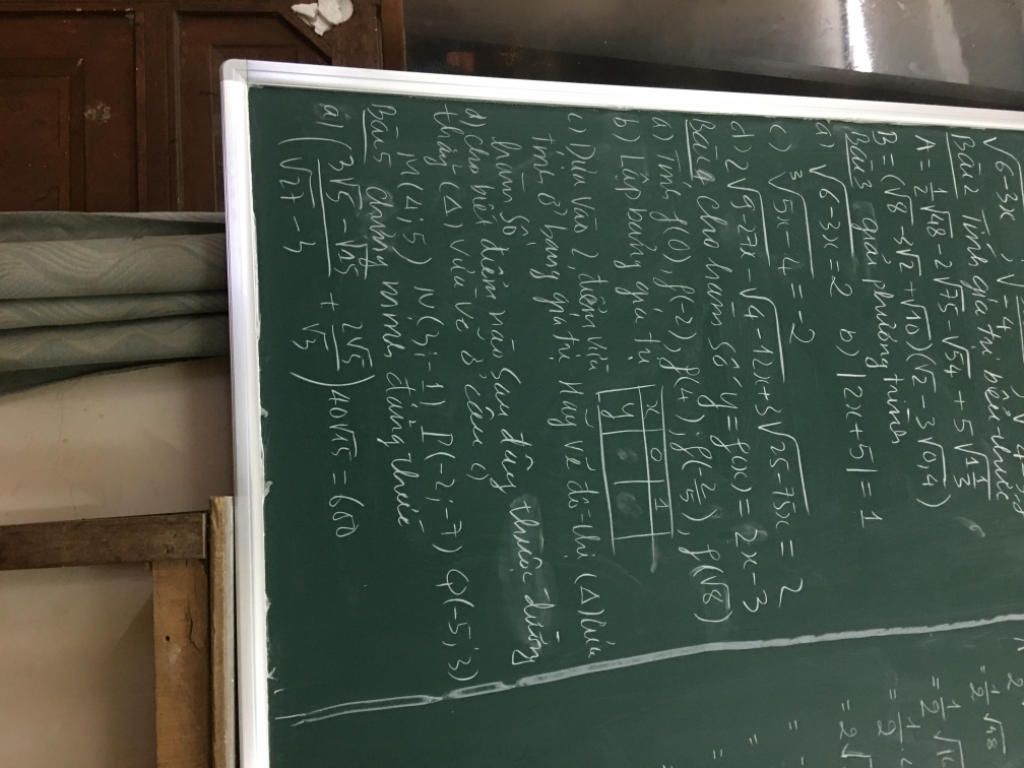 √6-3x
Bài 2 Tính giá trị biểu thức
A = 1/2 √48 - 2√75 - √54 + 5√1 1/3
B = (√8 - 3√2 + √10)(√2 - 3√0,4)
Bài 3 giải phương trình
a) √6-3x = 2 b) |2x+5| = 1
c) ³√5x-4 = -2
d) 2√9-27x - √4-12x + 3√25-75x = 2
Bài 4 Cho hàm số y = f(x) = 2x-3
a) Tính f(0); f(-2); f(4); f(2/5); f(√8)
b) Lập bảng giá trị
x 0 1
y
c) Dựa vào 2 điểm
trên ở bảng giá trị Hãy vẽ đồ thị (Δ) của
hàm số
d) Cho biết điểm nào sau đây thuộc đường
thẳng (Δ) vừa vẽ ở câu c)
M(4;5) N(3;-1) I(-2;-7) Q(-5;3)
Bài 5 Chứng minh đẳng thức
a) (3√5-√15/√27-3 + 2√5/√3) 40√15 = 600